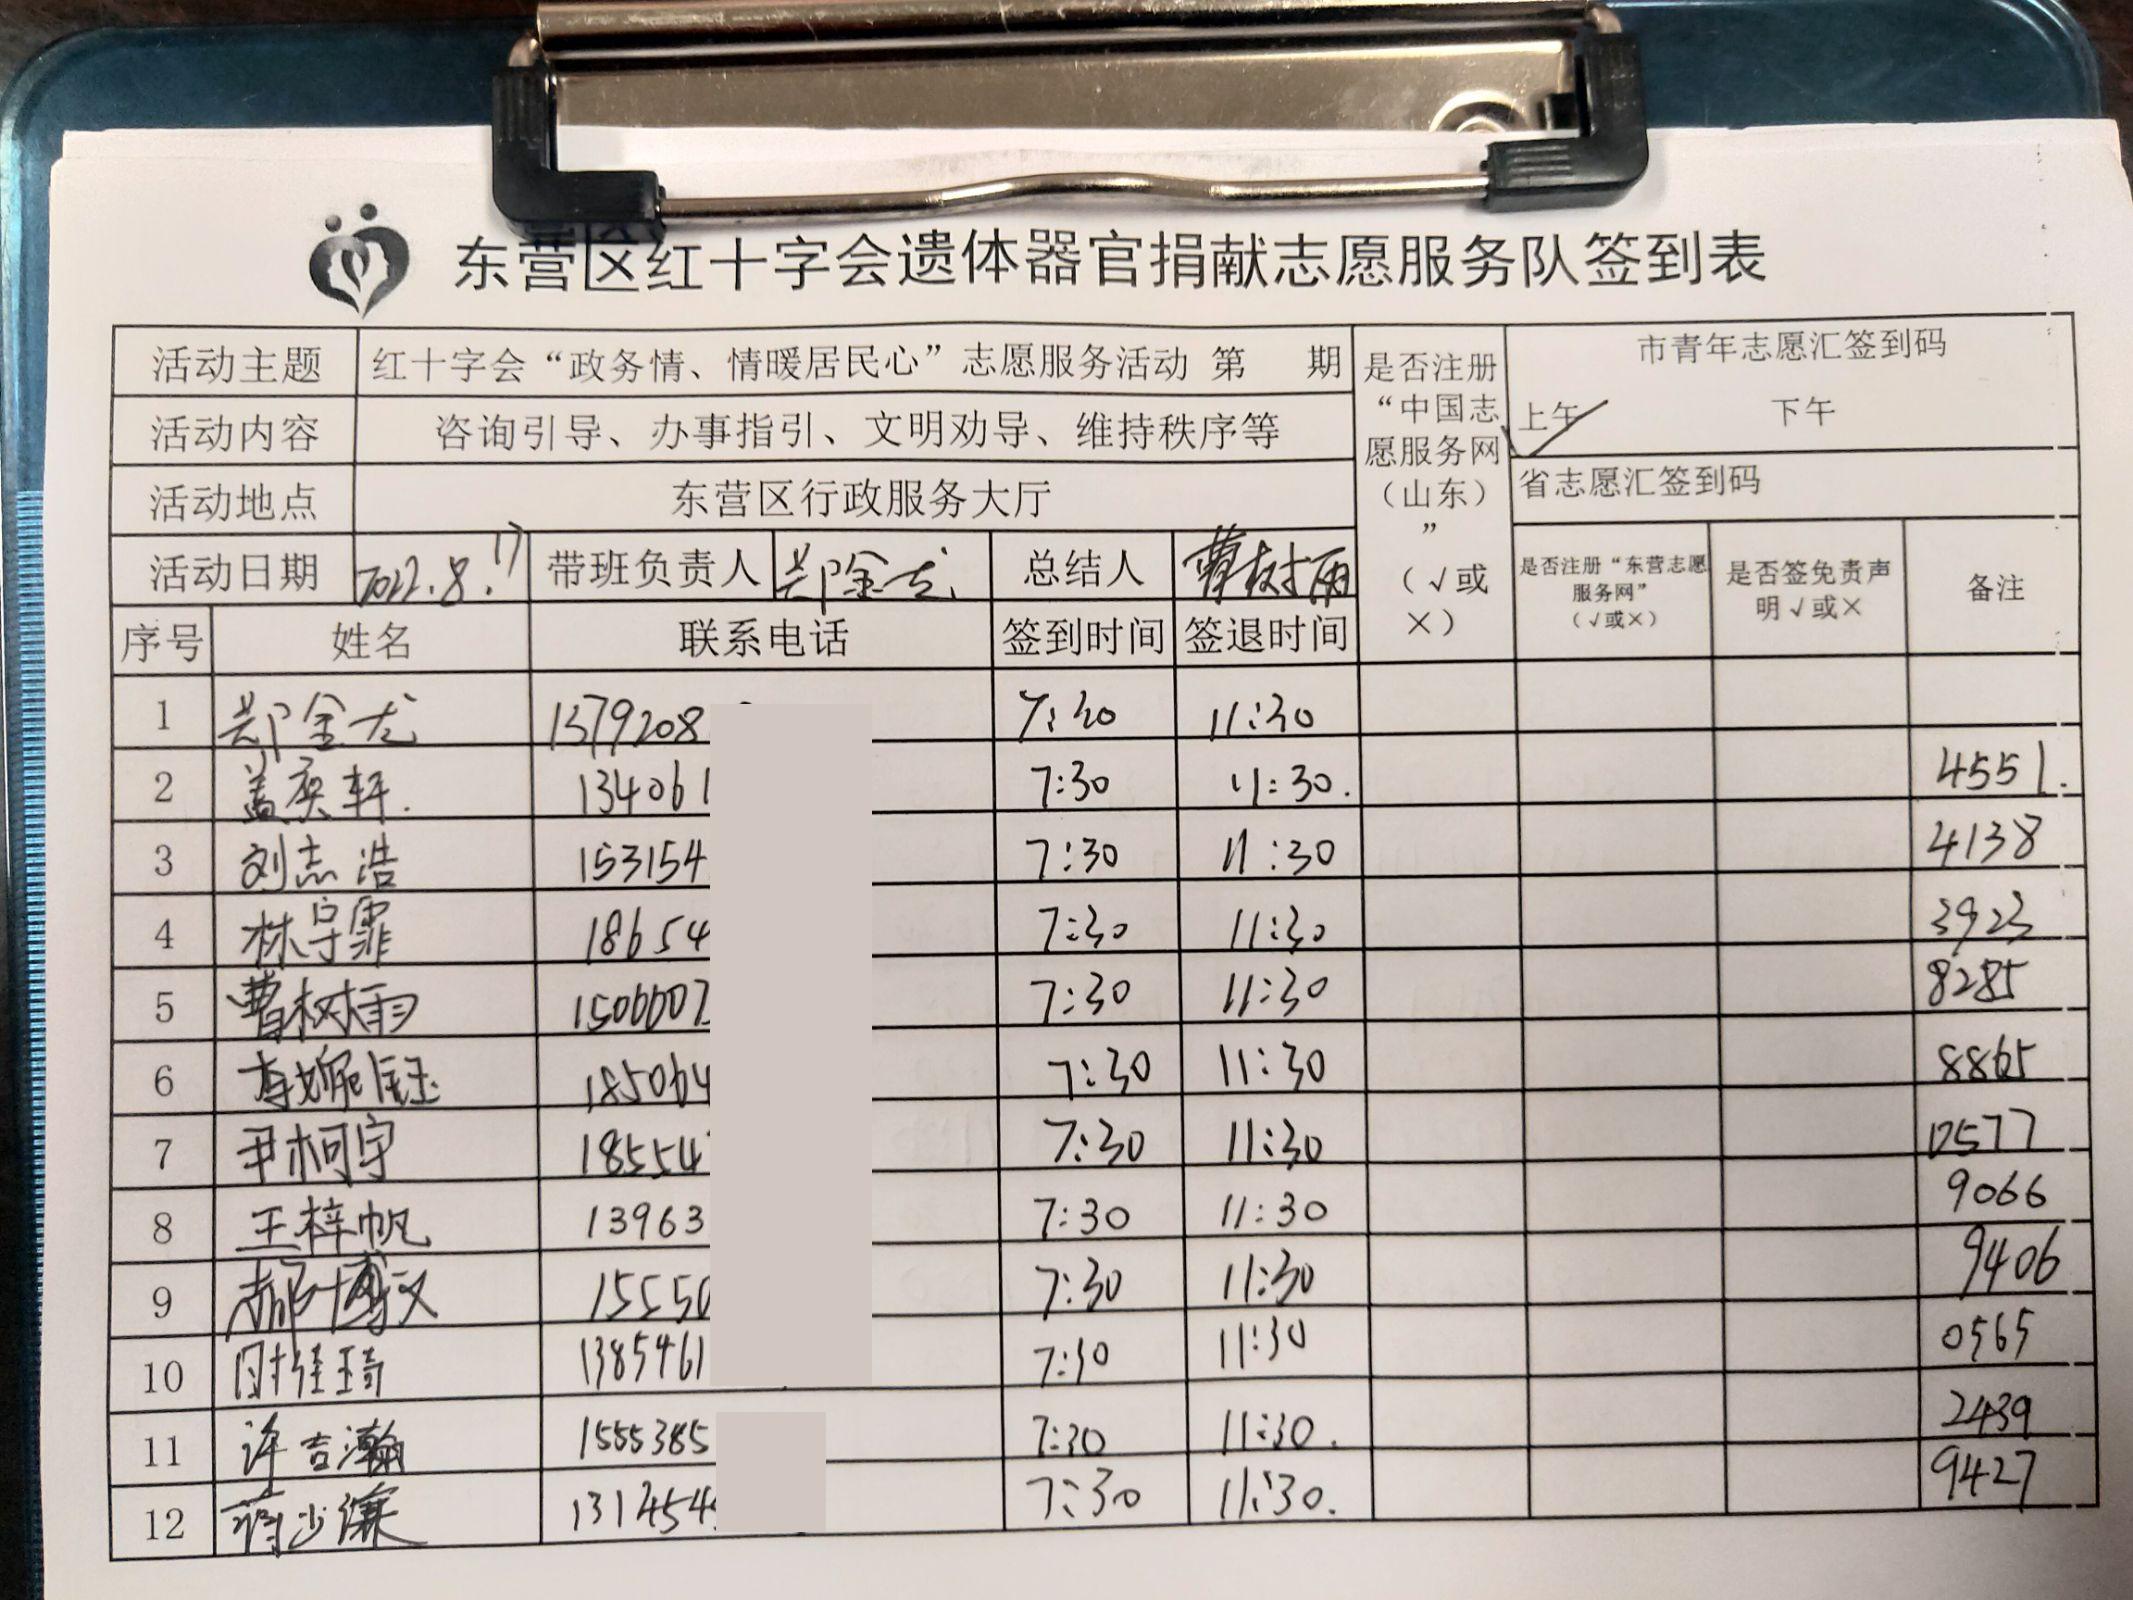 东营区红十字会遗体器官捐献志愿服务队签到表
活动主题 红十字会“政务情、情暖居民心”志愿服务活动 第 期
是否注册“中国志愿服务网（山东）”（√或×）
市青年志愿汇签到码
上午 下午
活动内容 咨询引导、办事指引、文明劝导、维持秩序等
活动地点 东营区行政服务大厅
省志愿汇签到码
活动日期 2022.8.17 带班负责人 郑金龙 总结人 曹树雨
是否注册“东营志愿服务网”（√或×）
是否签免责声明√或×
备注
序号 姓名 联系电话 签到时间 签退时间
1 郑金龙 1379208 7:30 11:30
2 盖奕轩. 134061 7:30 11:30. 4551.
3 刘志浩 153154 7:30 11:30 4138
4 林宗霏 18654 7:30 11:30 3923
5 曹树雨 1506607 7:30 11:30 8285
6 185064 7:30 11:30 8865
7 尹柯宇 18554 7:30 11:30 0577
8 王梓帆 13963 7:30 11:30 9066
9 郝博文 15550 7:30 11:30 9406
10 1385461 7:30 11:30 0565
11 许吉瀚 1555385 7:30 11:30. 2439
12 蒋少谦 1314454 7:30 11:30. 9427